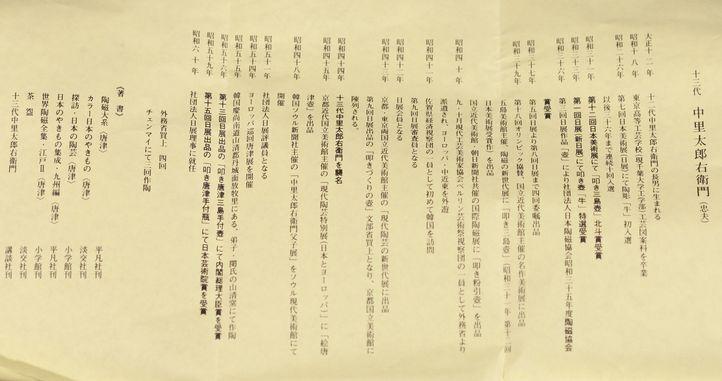 十三代 中里太郎右衛門(忠夫)
大正十二年 十二代中里太郎右衛門の長男に生まれる
昭和十八年 東京高等工芸学校(現千葉大学工学部)工芸図案科を卒業
昭和二十六年 第七回日本美術展(日展)にて陶彫「牛」初入選
以後三十六年まで連続十回入選
昭和三十一年 第十二回日本美術展にて「叩き三島壺」北斗賞受賞
昭和三十三年 第一回日展(新日展)にて叩き壺「牛」特選受賞
昭和三十六年 第三回日展作品「壺」により社団法人日本陶磁協会昭和三十五年度陶磁協会
賞受賞
昭和三十七年 第五回日展より第八回日展まで四回委嘱出品
昭和三十九年 第十八回オリンピック協賛、国立近代美術館主催の名作美術展に出品
五島美術館主催、陶磁の新世代展に「叩き三島壺」(昭和三十一年 第十二回
日本美術展受賞作)を出品
国立近代美術館・朝日新聞社共催の国際陶磁展に「叩き粉引壺」を出品
昭和四十年 九・十月現代工芸美術家協会ベルリン芸術祭視察団の一員として外務省より
派遣され、ヨーロッパ・中近東を外遊
昭和四十一年 佐賀県経済視察団の一員として初めて韓国を訪問
第九回日展審査員となる
昭和四十二年 日展会員となる
昭和四十三年 京都・東京両国立近代美術館主催の「現代陶芸の新世代展に出品
第九回日展出品の「叩きづくりの壺」文部省買上となり、京都国立美術館に
陳列される。
昭和四十四年 十三代中里太郎右衛門を襲名
昭和四十五年 京都近代国立美術館主催の「現代陶芸特別展(日本とヨーロッパ)」に「絵唐
津壺」を出品
昭和四十八年 韓国ソウル新聞社主催の「中里太郎右衛門父子展」をソウル現代美術館にて
開催
昭和五十一年 社団法人日展評議員となる
昭和五十四年 ヨーロッパ巡回唐津展を開催
昭和五十五年 韓国慶尚南道山清郡丹城面放牧里にある、弟子・閔氏の山清窯にて作陶
昭和五十六年 第十三回日展出品の「叩き唐津三島手付壺」にて内閣総理大臣賞を受賞
昭和五十九年 第十五回日展出品の「叩き唐津手付瓶」にて日本芸術院賞を受賞
昭和六十年 社団法人日展理事に就任
外務省買上 四回
チェンマイにて三回作陶
(著書)
陶磁大系(唐津) 平凡社刊
カラー日本のやきもの(唐津) 淡交社刊
探訪・日本の陶芸(唐津) 小学館刊
日本のやきもの集成・九州編(唐津) 平凡社刊
世界陶磁全集・江戸II(唐津) 小学館刊
茶盌 淡交社刊
十三代中里太郎右衛門 講談社刊